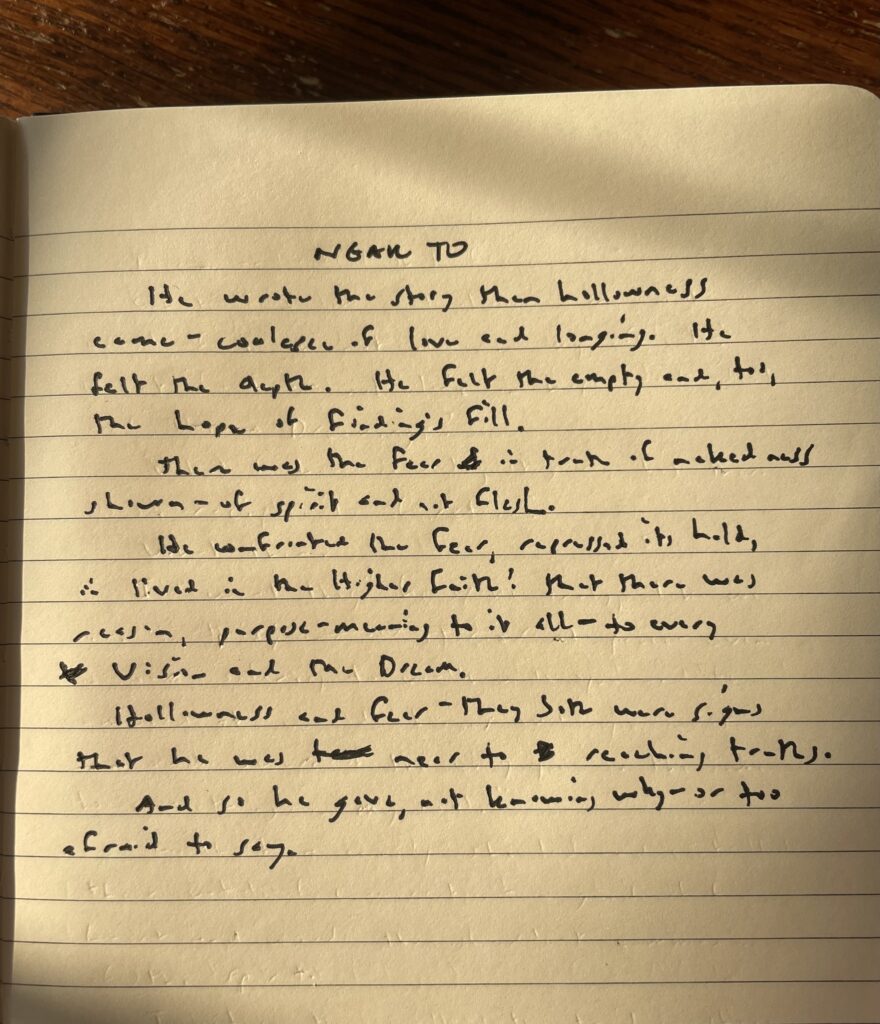 NEAR TO
He wrote the story then hollowness
came - coalesce of love and longing. He
felt the depth. He felt the empty and, too,
the hope of finding's fill.
There was the fear in truth of nakedness
shown - of spirit and not flesh.
He confronted the fear, repressed its hold,
∴ lived in the Higher Faith! that there was
reason, purpose - meaning to it all - to every
Vision and the Dream.
Hollowness and fear - they both were signs
that he was near to reaching truths.
And so he gave, not knowing why - or too
afraid to say.